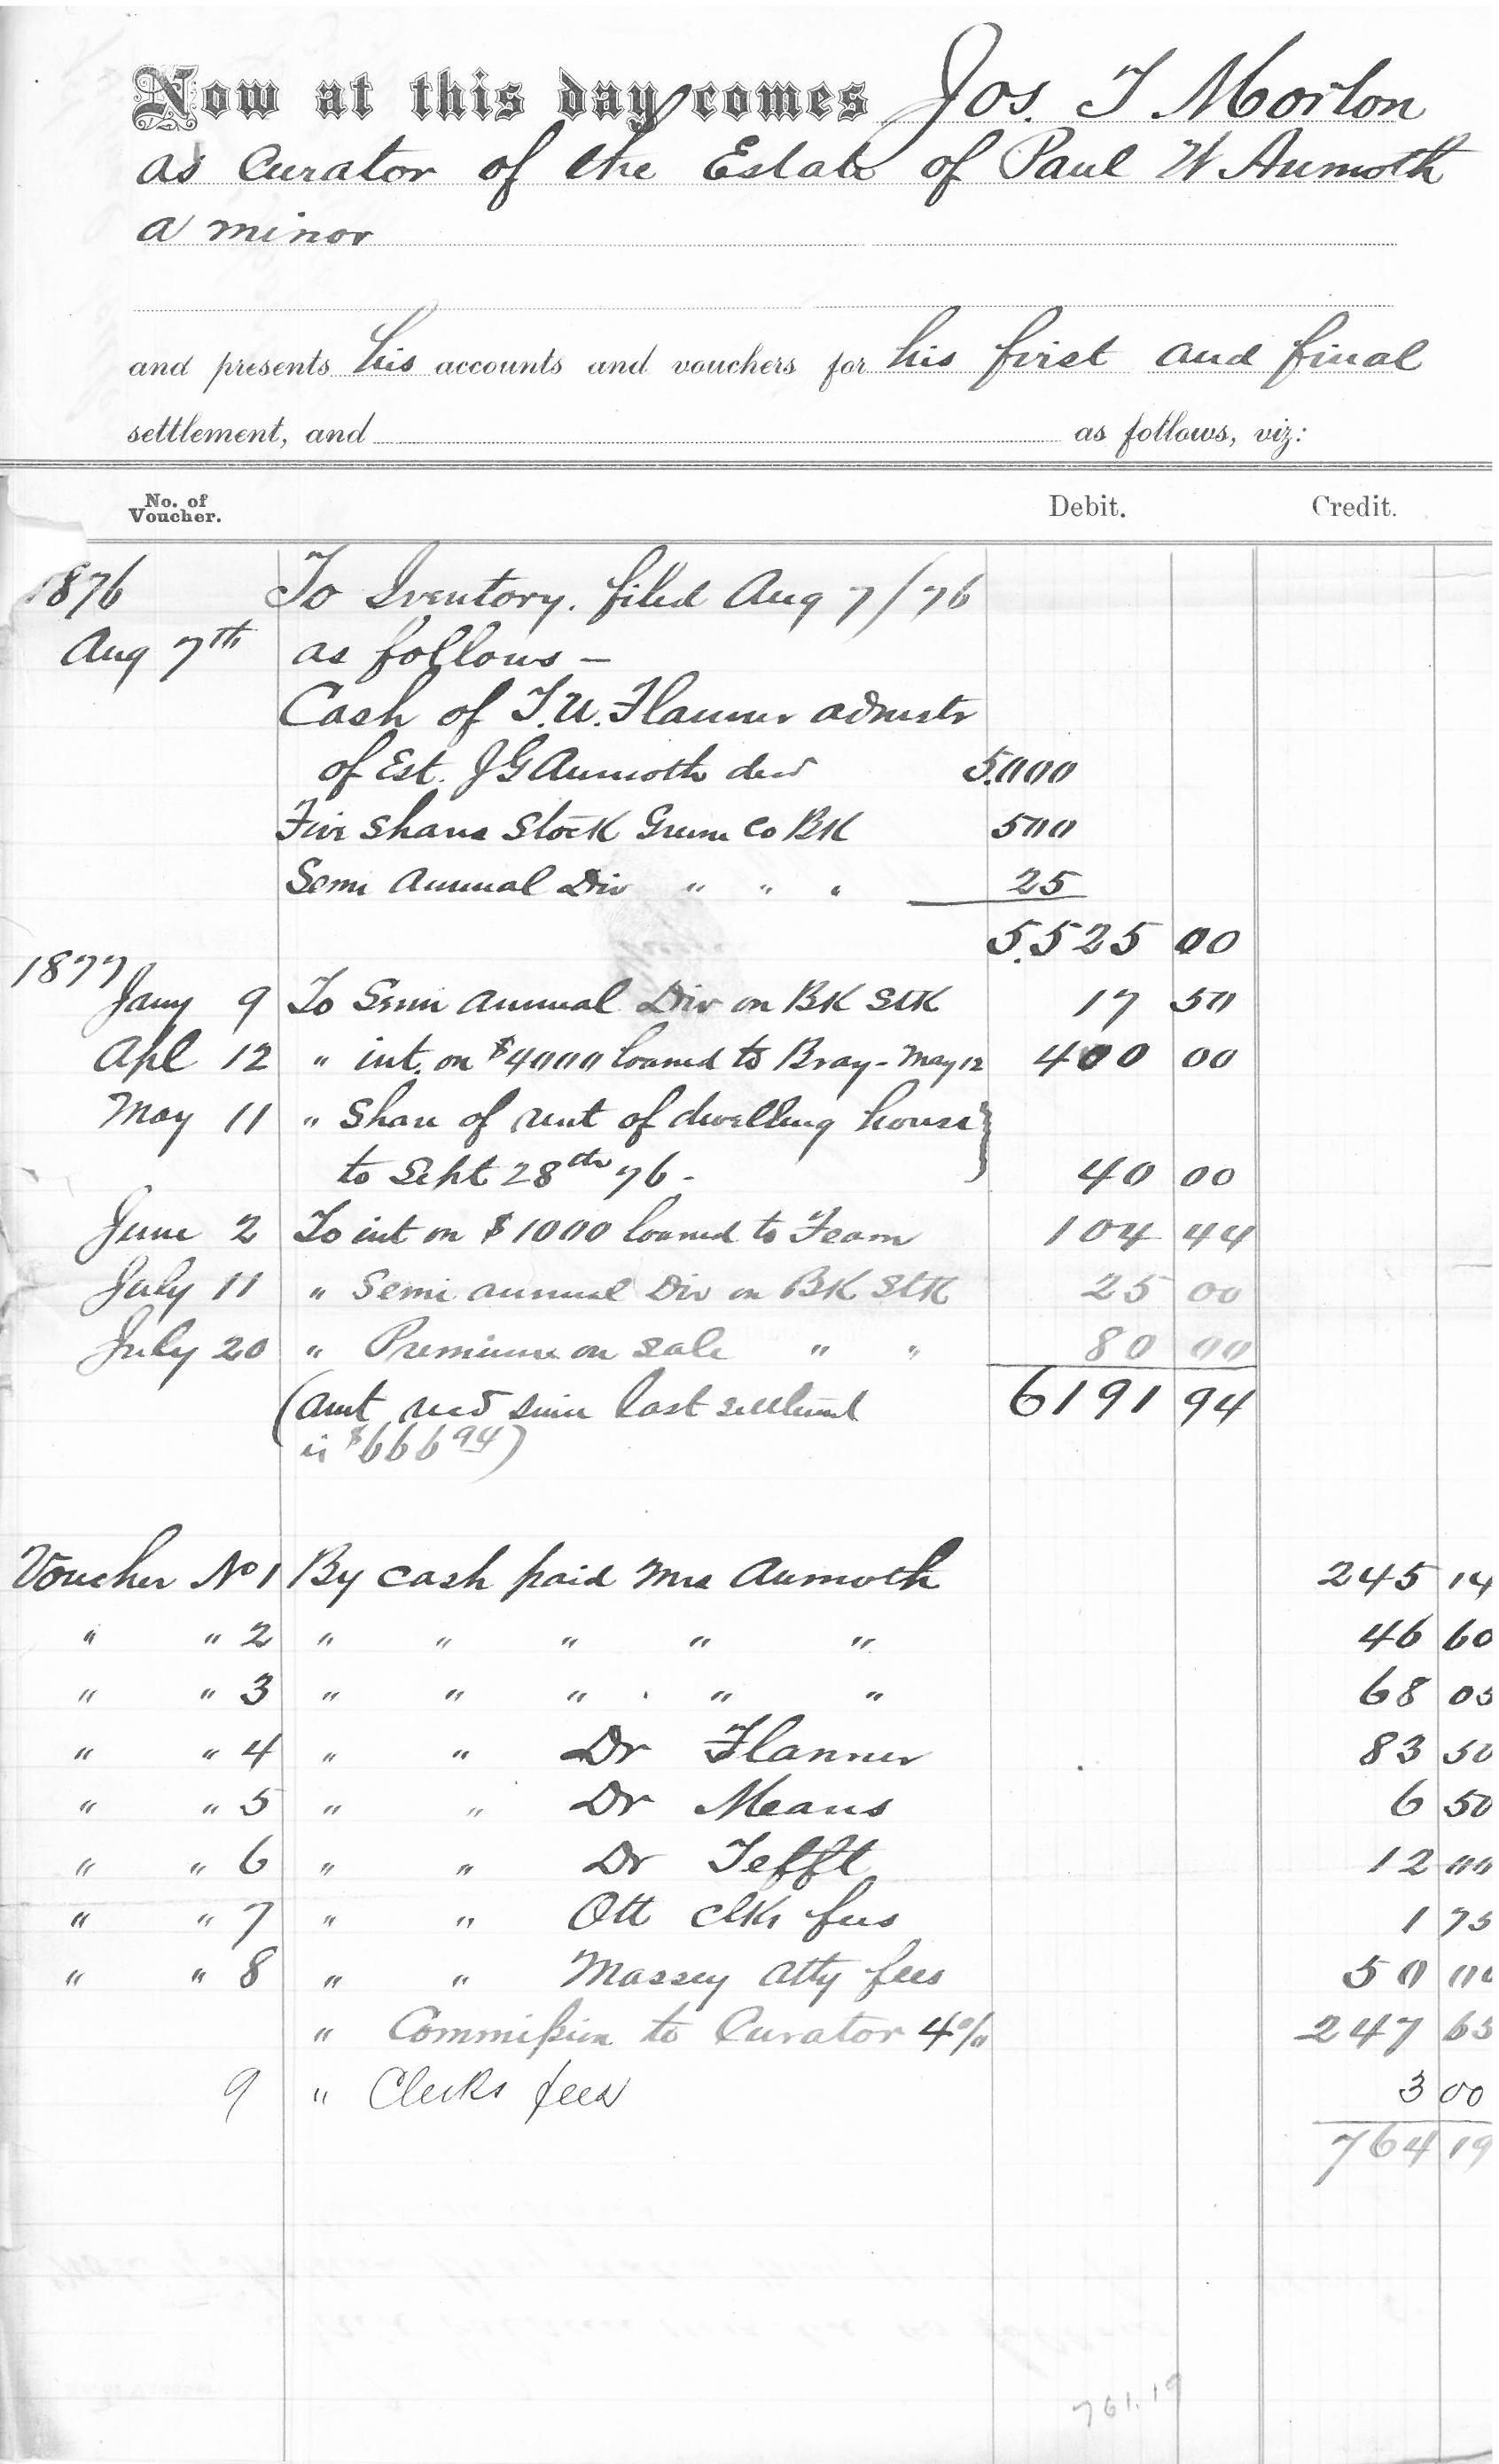 Now at this day comes Jos. T Morton
as Curator of the Estate of Paul W Aumoth
a minor
and presents his accounts and vouchers for his first and final
settlement, and as follows, viz:
No. of Voucher. Debit. Credit.
1876 To Iventory. filed Aug 7/76
Aug 7th as follows –
Cash of T.U. Flanner admstr
of Est. J G Aumoth decd 5.000
Five Shares Stock Greene Co BK 500
Semi Annual Div " " " 25
5.525 00
1877
Jany 9 To Semi Annual Div on BK StK 17 50
Apl 12 " int. on $4000 loaned to Bray - May 12 400 00
May 11 " Share of rent of dwelling house
to Sept 28th 76 - 40 00
June 2 To int on $1000 loaned to Fearn 104 44
July 11 " Semi annual Div on BK StK 25 00
July 20 " Premium on sale " " 80 00
(amt recd since last settlemt 6191 94
is $666 94)
Voucher No 1 By cash paid Mrs Aumoth 245 14
" " 2 " " " " " 46 60
" " 3 " " " " " 68 05
" " 4 " " Dr Flanner 83 50
" " 5 " " Dr Means 6 50
" " 6 " " Dr Tefft 12 00
" " 7 " " Ott clks fees 1 75
" " 8 " " Massey atty fees 50 00
" Commission to Curator 4% 247 65
9 " Clerks fees 3 00
764 19
761.19